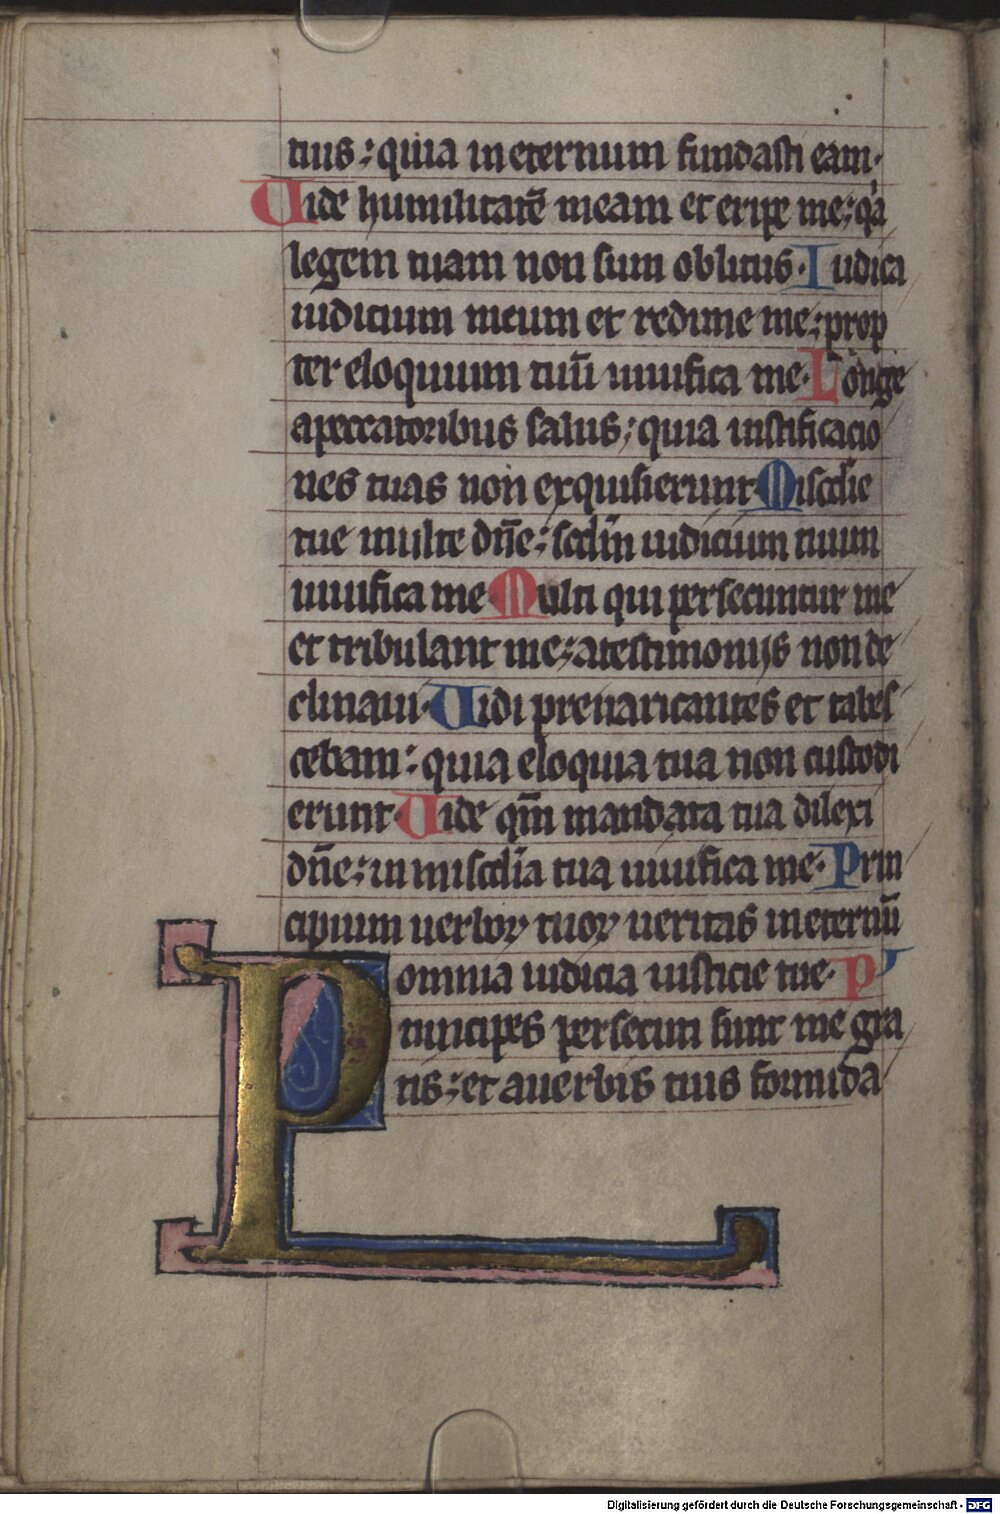 tuis : quia in eternum fundasti eam·
Uide humilitatē meam et eripe me : qͣ
legem tuam non sum oblitus· Iudica
iudicium meum et redime me : prop
ter eloquium tuū uiuifica me· Longe
a peccatoribus salus : quia iustificacio
nes tuas non exquisierunt· Miscdīe
tue multe dn̄e : scdm̄ iudicium tuum
uiuifica me· Multi qui persecuntur me
et tribulant me : a testimonijs non de
clinaui· Uidi preuaricantes et tabes
cebam : quia eloquia tua non custodi
erunt· Uide qm̄ mandata tua dilexi
dn̄e : in miscdīa tua uiuifica me· Prin
cipium uerboꝝ tuoꝝ ueritas in eternū
omnia iudicia iusticie tue· P
rincipes persecuti sunt me gra
tis : et a uerbis tuis formida
Digitalisierung gefördert durch die Deutsche Forschungsgemeinschaft - DFG